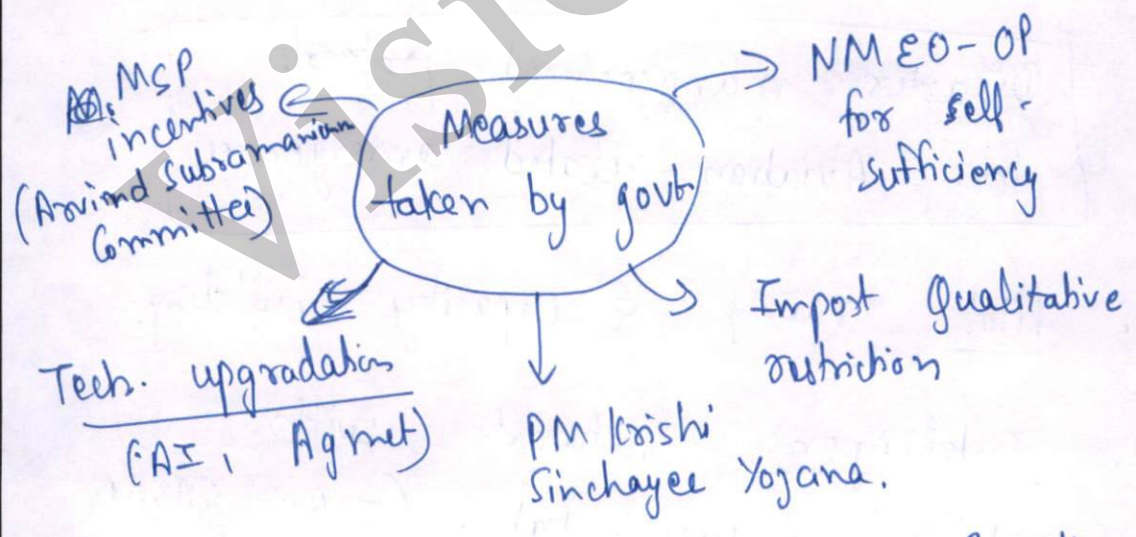 Measures
taken by govt
MSP
incentives
(Arvind Subramanian
Committee)
NMEO-OP
for self-
sufficiency
Import Qualitative
restriction
PM Krishi
Sinchayee Yojana.
Tech. upgradation
(AI, Agmet)
Visio